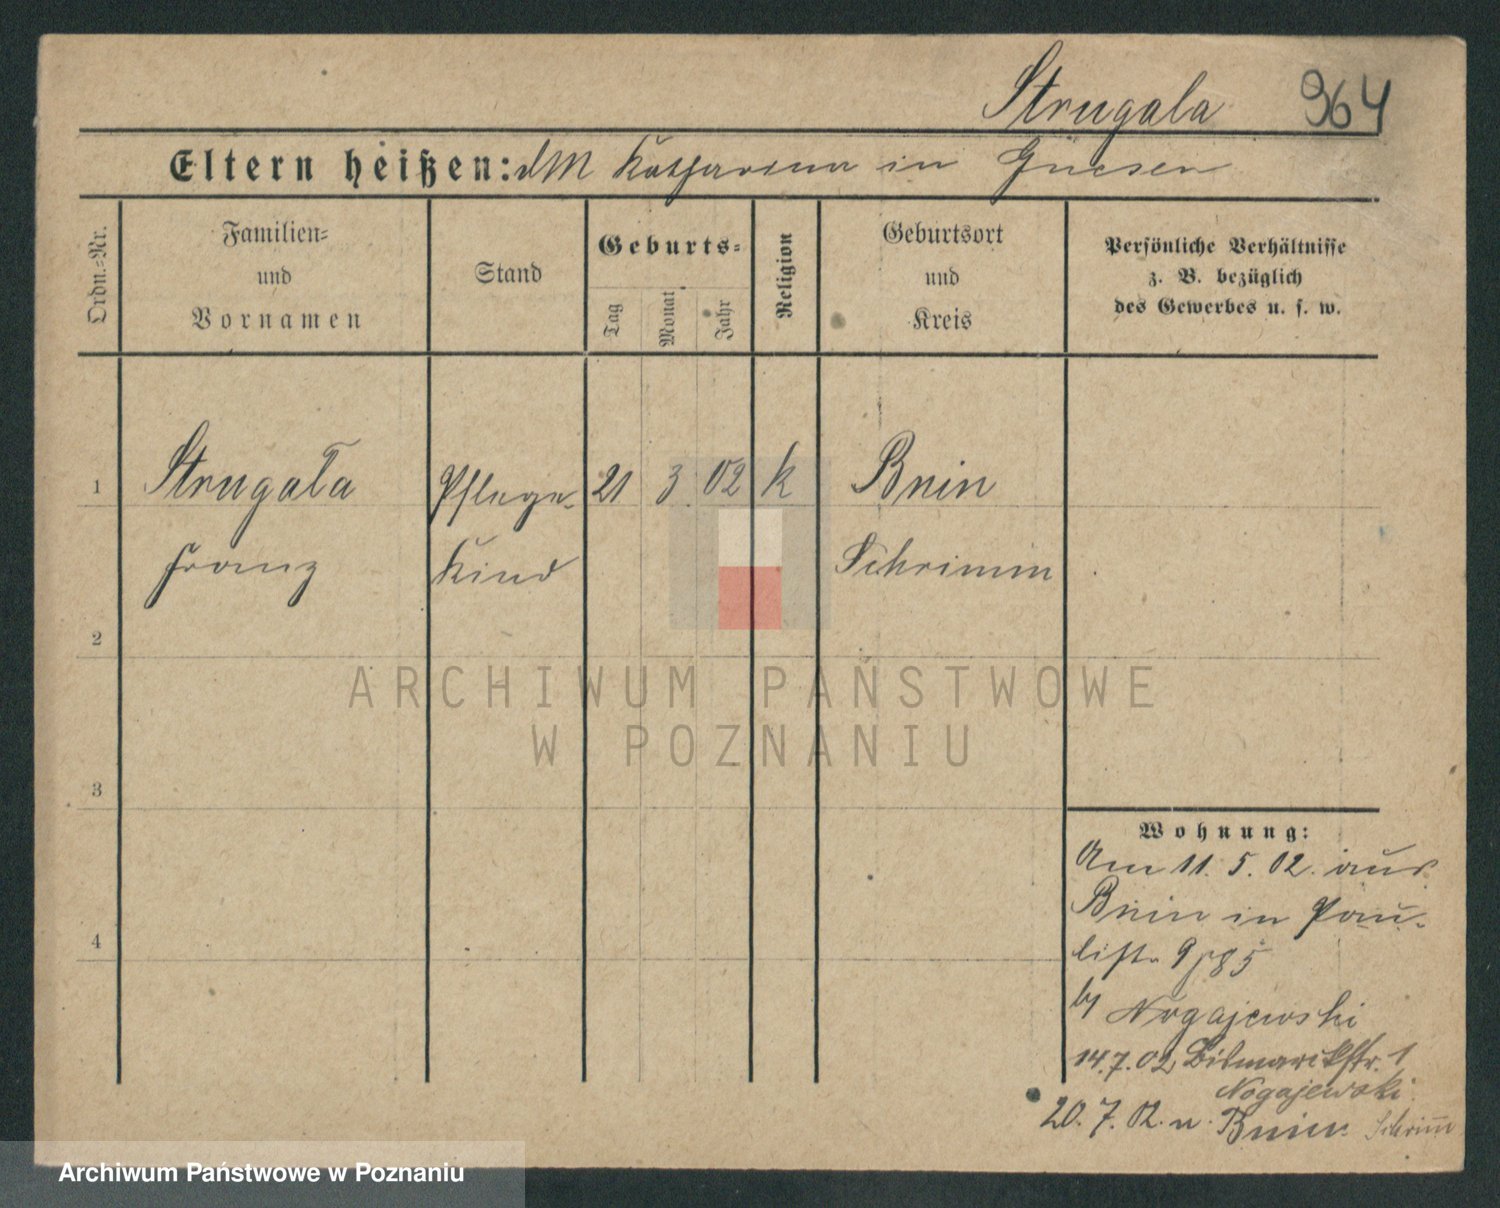 Strugala 964
Eltern heißen: d M Katharina in Gnesen
Ordn.=Nr.
Familien=
und
Vornamen
Stand
Geburts=
Tag
Monat
Jahr
Religion
Geburtsort
und
Kreis
Persönliche Verhältnisse
z. B. bezüglich
des Gewerbes u. s. w.
1 Strugala Pflege- 21 3 02 k Bnin
Franz Kind Schrimm
2
3
4
Wohnung:
Am 11. 5. 02. aus
Bnin in Pau-
listr. 9 85
by Nogajewski
14. 7. 02 Bismarckstr. 1
Nogajewski
20. 7. 02. n. Bnin Schrim̄
ARCHIWUM PAŃSTWOWE
W POZNANIU
Archiwum Państwowe w Poznaniu